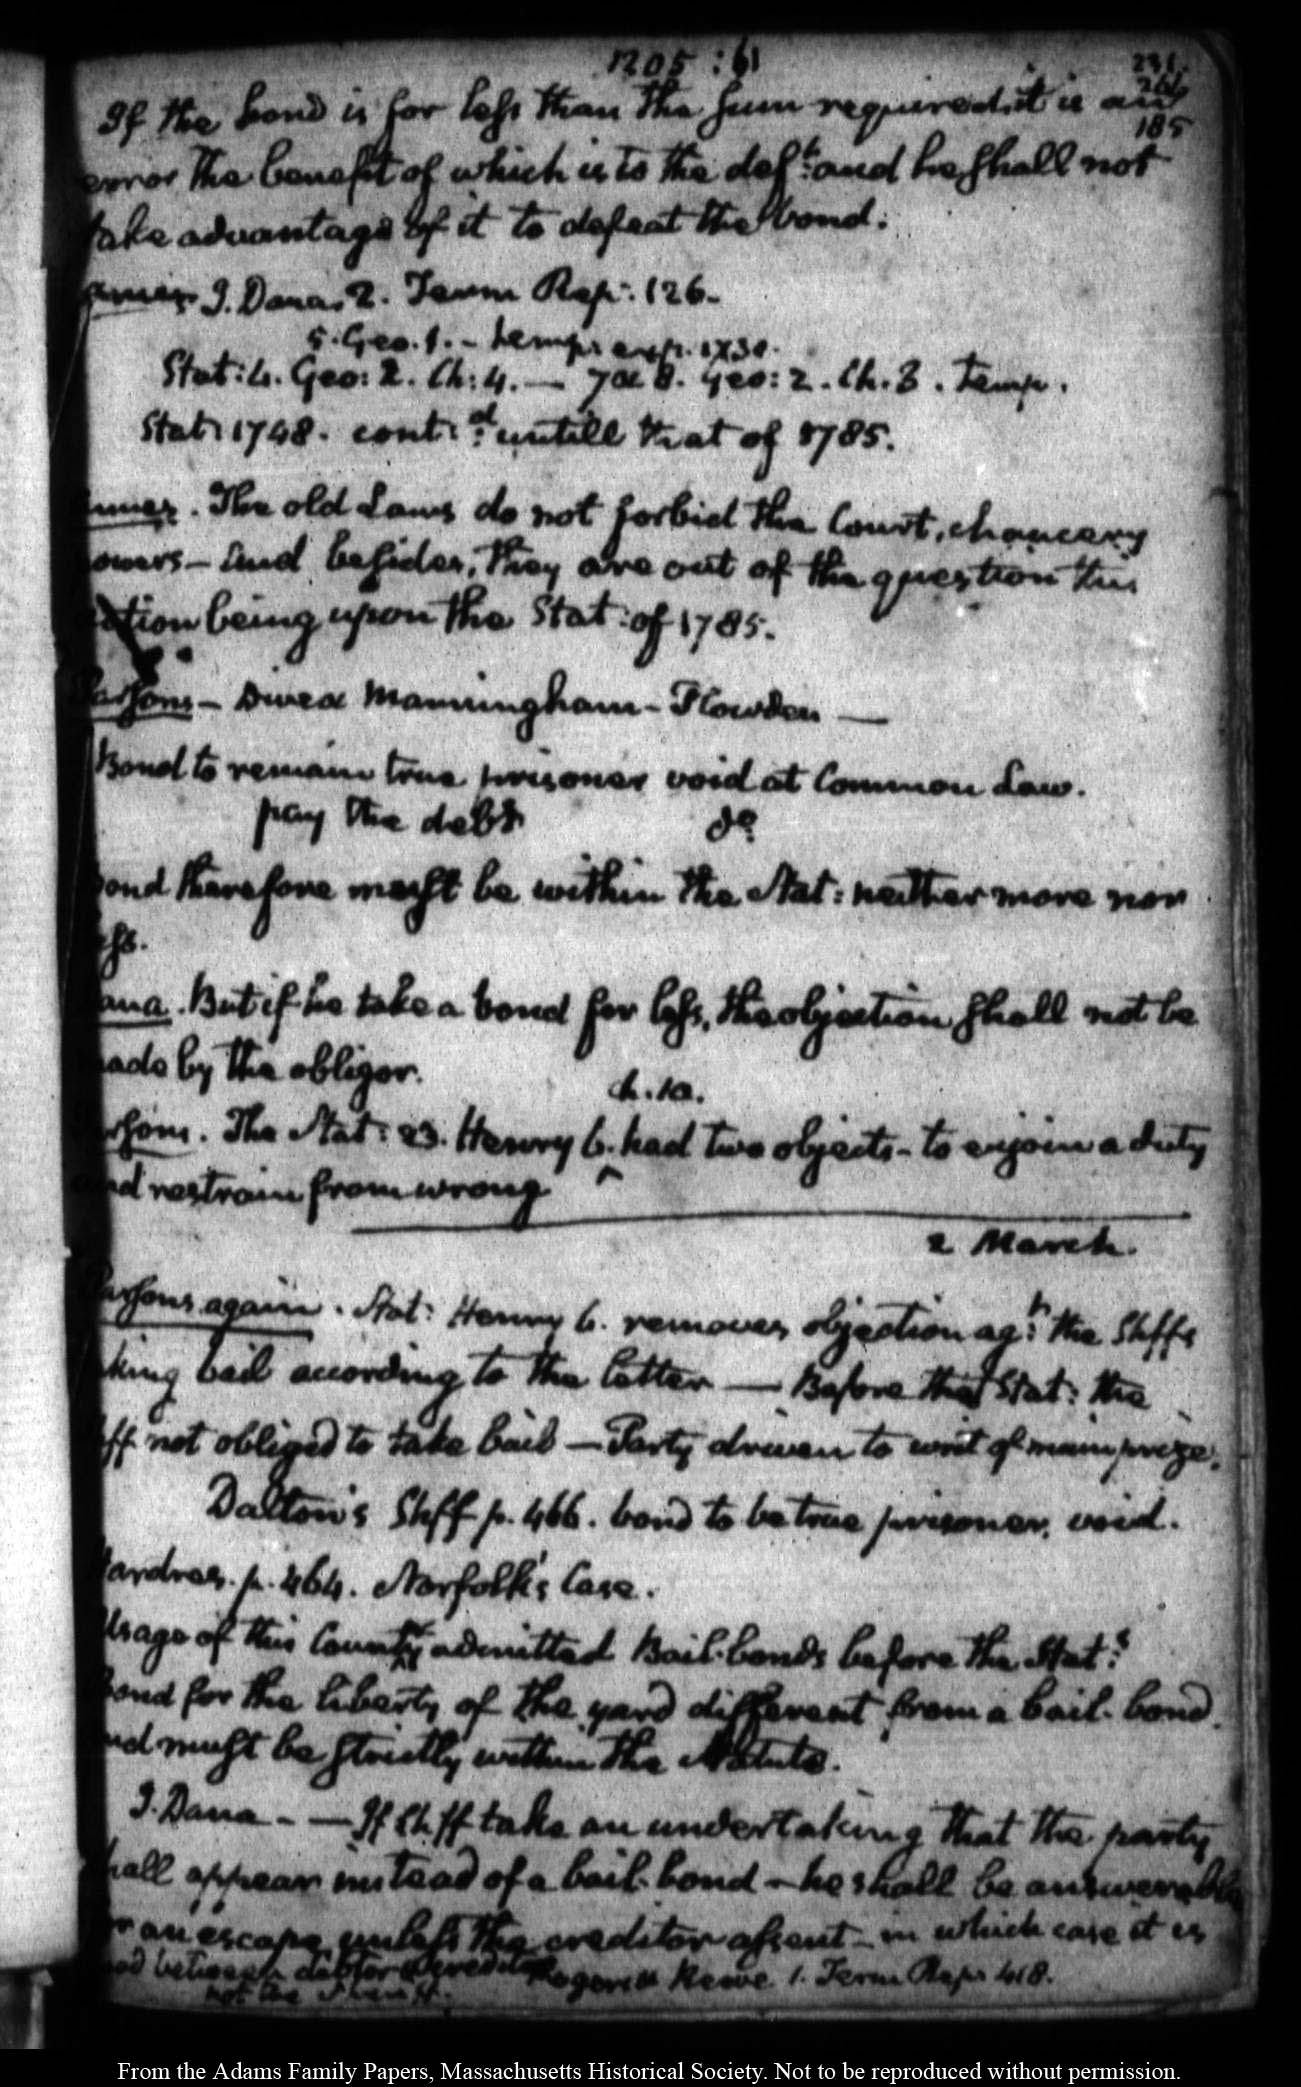 1205 : 61
231.
266
185
If the bond is for less than the sum required it is an
error the benefit of which is to the deft: and he shall not
take advantage of it to defeat the bond.
ames J. Dana. 2. Term Rep: 126.
5. Geo. 1. - temp: exp. 1730.
Stat: 4. Geo: 2. Ch: 4. — 7 & 8. Geo: 2. Ch. 3. temp.
Stat: 1748. cont:d untill that of 1785.
The old Laws do not forbid the Court, chancery
owers - And besides, they are out of the question this
action being upon the Stat: of 1785.
Parsons - Dive & Manningham - Plowden —
Bond to remain true prisoner void at Common Law.
pay the debt do
Bond therefore must be within the Stat: neither more nor
ess.
Dana. But if he take a bond for less, the objection shall not be
made by the obligor.
ch. 10.
Parsons. The Stat: 23. Henry 6. ^ had two objects - to enjoin a duty
and restrain from wrong
2 March.
Parsons again. Stat: Henry 6. removes objection agt: the Shffs
aking bail according to the letter — Before that Stat: the
ff not obliged to take bail — Party driven to writ of mainprize.
Dalton's Shff p. 466. bond to be true prisoner, void.
Hardres. p. 464. Norfolk's Case.
Usage of this County admitted Bail-bonds before the Stat:s
Bond for the liberty of the yard different from a bail-bond.
and must be strictly within the Statute.
J. Dana - — If Shff take an undertaking that the party
shall appear instead of a bail-bond - he shall be answerable
for an escape unless the creditor assent - in which case it is
between debtor & creditor Rogers & Reeve 1. Term Rep: 418.
not the Sheriff.
From the Adams Family Papers, Massachusetts Historical Society. Not to be reproduced without permission.